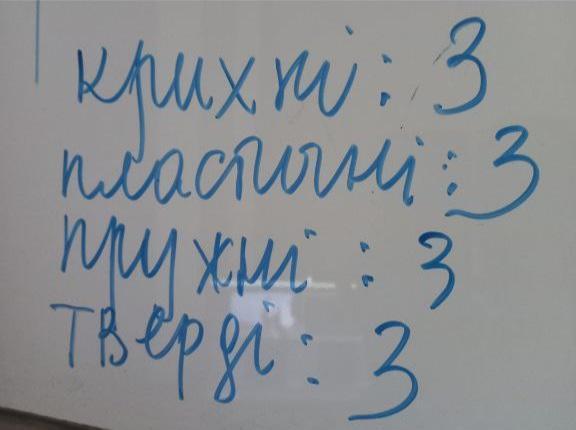 крихкі: 3
пластичні: 3
пружні: 3
тверді: 3